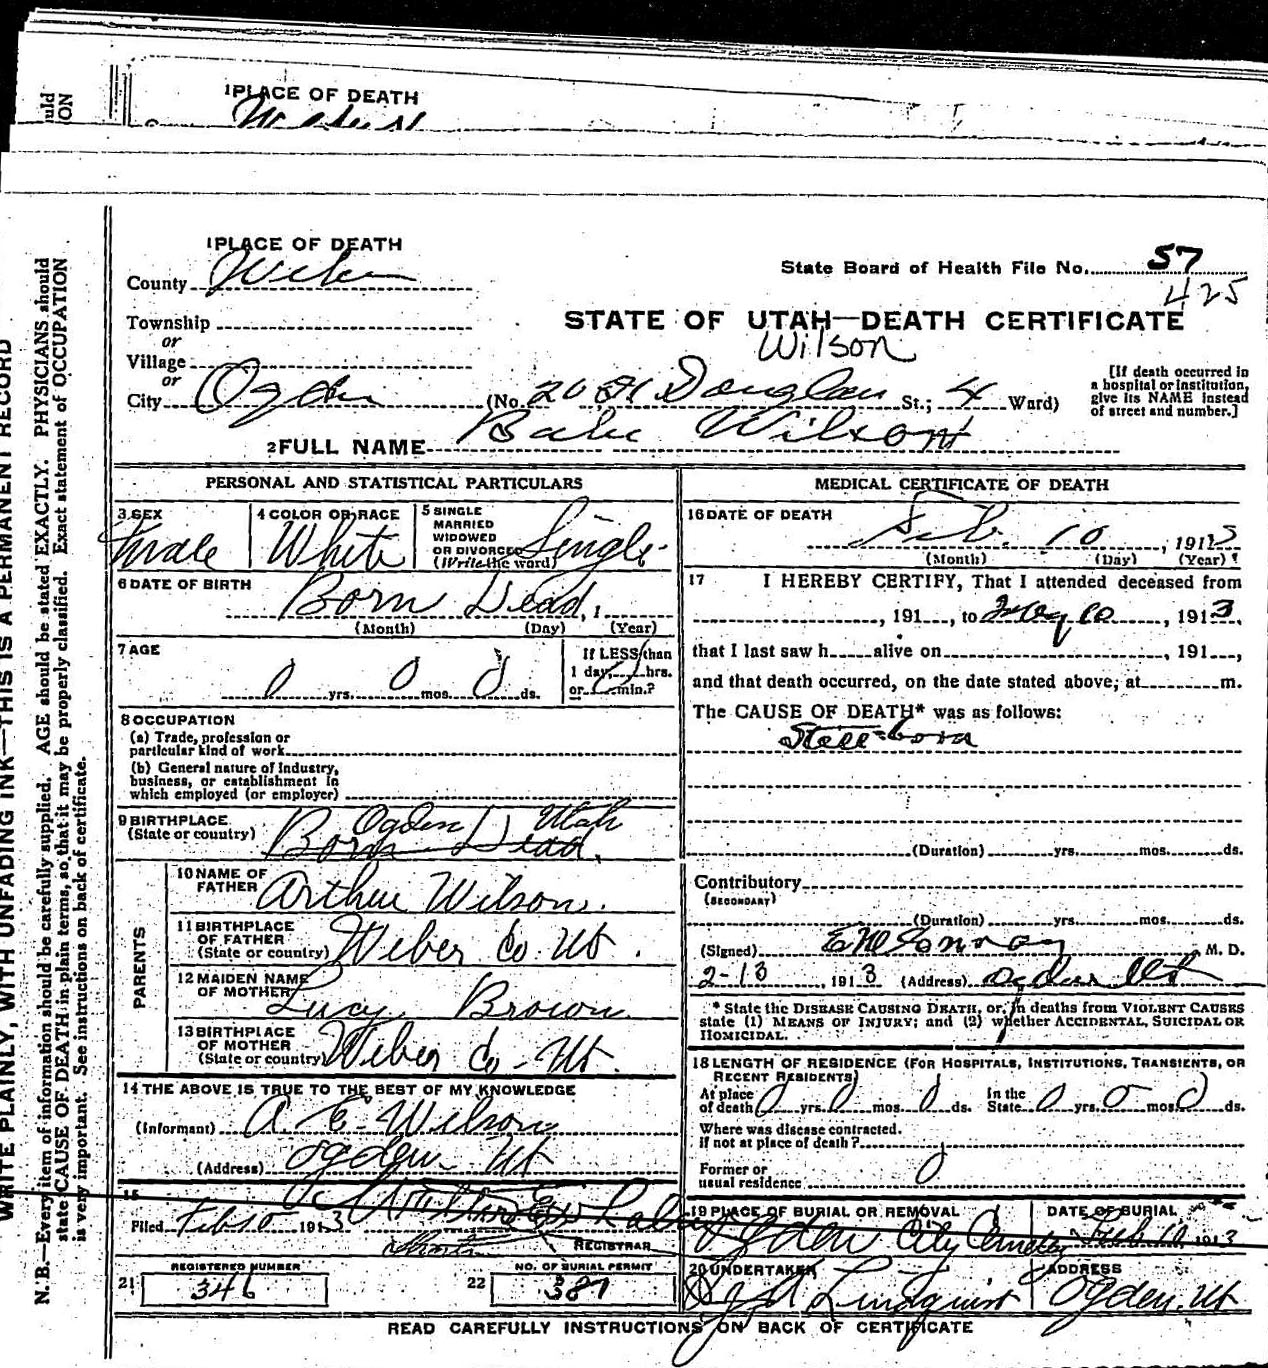 uld
ON
1 PLACE OF DEATH
WRITE PLAINLY, WITH UNFADING INK—THIS IS A PERMANENT RECORD
N. B.—Every item of information should be carefully supplied. AGE should be stated EXACTLY. PHYSICIANS should
state CAUSE OF DEATH in plain terms, so that it may be properly classified. Exact statement of OCCUPATION
is very important. See instructions on back of certificate.
1 PLACE OF DEATH
County Weber
State Board of Health File No. 57
425
Township
or
Village
or
STATE OF UTAH—DEATH CERTIFICATE
Wilson
City Ogden (No. 2081 Douglas St.; 4 Ward)
[If death occurred in
a hospital or institution,
give its NAME instead
of street and number.]
2 FULL NAME Babe Wilson
PERSONAL AND STATISTICAL PARTICULARS
3 SEX
4 COLOR OR RACE White
5 SINGLE
MARRIED
WIDOWED
OR DIVORCED
(Write the word) Single
6 DATE OF BIRTH
Born Dead, 1
(Month) (Day) (Year)
7 AGE
0 yrs. 0 mos. 0 ds.
If LESS than
1 day, hrs.
or min.?
8 OCCUPATION
(a) Trade, profession or
particular kind of work
(b) General nature of Industry,
business, or establishment in
which employed (or employer)
9 BIRTHPLACE
(State or country)
Ogden Utah
Born Dead,
PARENTS
10 NAME OF
FATHER Arthur Wilson.
11 BIRTHPLACE
OF FATHER
(State or country) Weber Co. Ut.
12 MAIDEN NAME
OF MOTHER Lucy Brown
13 BIRTHPLACE
OF MOTHER
(State or country) Weber Co - Ut.
14 THE ABOVE IS TRUE TO THE BEST OF MY KNOWLEDGE
(Informant) A. E. Wilson
(Address) Ogden Ut
15
Filed Feb 10 1913
REGISTRAR
REGISTERED NUMBER
21 346
NO. OF BURIAL PERMIT
22 387
MEDICAL CERTIFICATE OF DEATH
16 DATE OF DEATH
Feb. 10, 1913
(Month) (Day) (Year)
17 I HEREBY CERTIFY, That I attended deceased from
, 191 , to 10, 1913,
that I last saw h alive on , 191 ,
and that death occurred, on the date stated above, at m.
The CAUSE OF DEATH* was as follows:
Still-born
(Duration) yrs. mos. ds.
Contributory
(SECONDARY)
(Duration) yrs. mos. ds.
(Signed) E M Conroy M. D.
2-13, 1913 (Address) Ogden Ut
* State the DISEASE CAUSING DEATH, or, in deaths from VIOLENT CAUSES
state (1) MEANS OF INJURY; and (2) whether ACCIDENTAL, SUICIDAL OR
HOMICIDAL.
18 LENGTH OF RESIDENCE (FOR HOSPITALS, INSTITUTIONS, TRANSIENTS, OR
RECENT RESIDENTS)
At place
of death 0 yrs. 0 mos. 0 ds.
In the
State 0 yrs. 0 mos. 0 ds.
Where was disease contracted.
if not at place of death?
Former or
usual residence 0
19 PLACE OF BURIAL OR REMOVAL
Ogden City Cemetery
DATE OF BURIAL
Feb 10, 1913
20 UNDERTAKER
Lindquist
ADDRESS
Ogden, Ut
READ CAREFULLY INSTRUCTIONS ON BACK OF CERTIFICATE